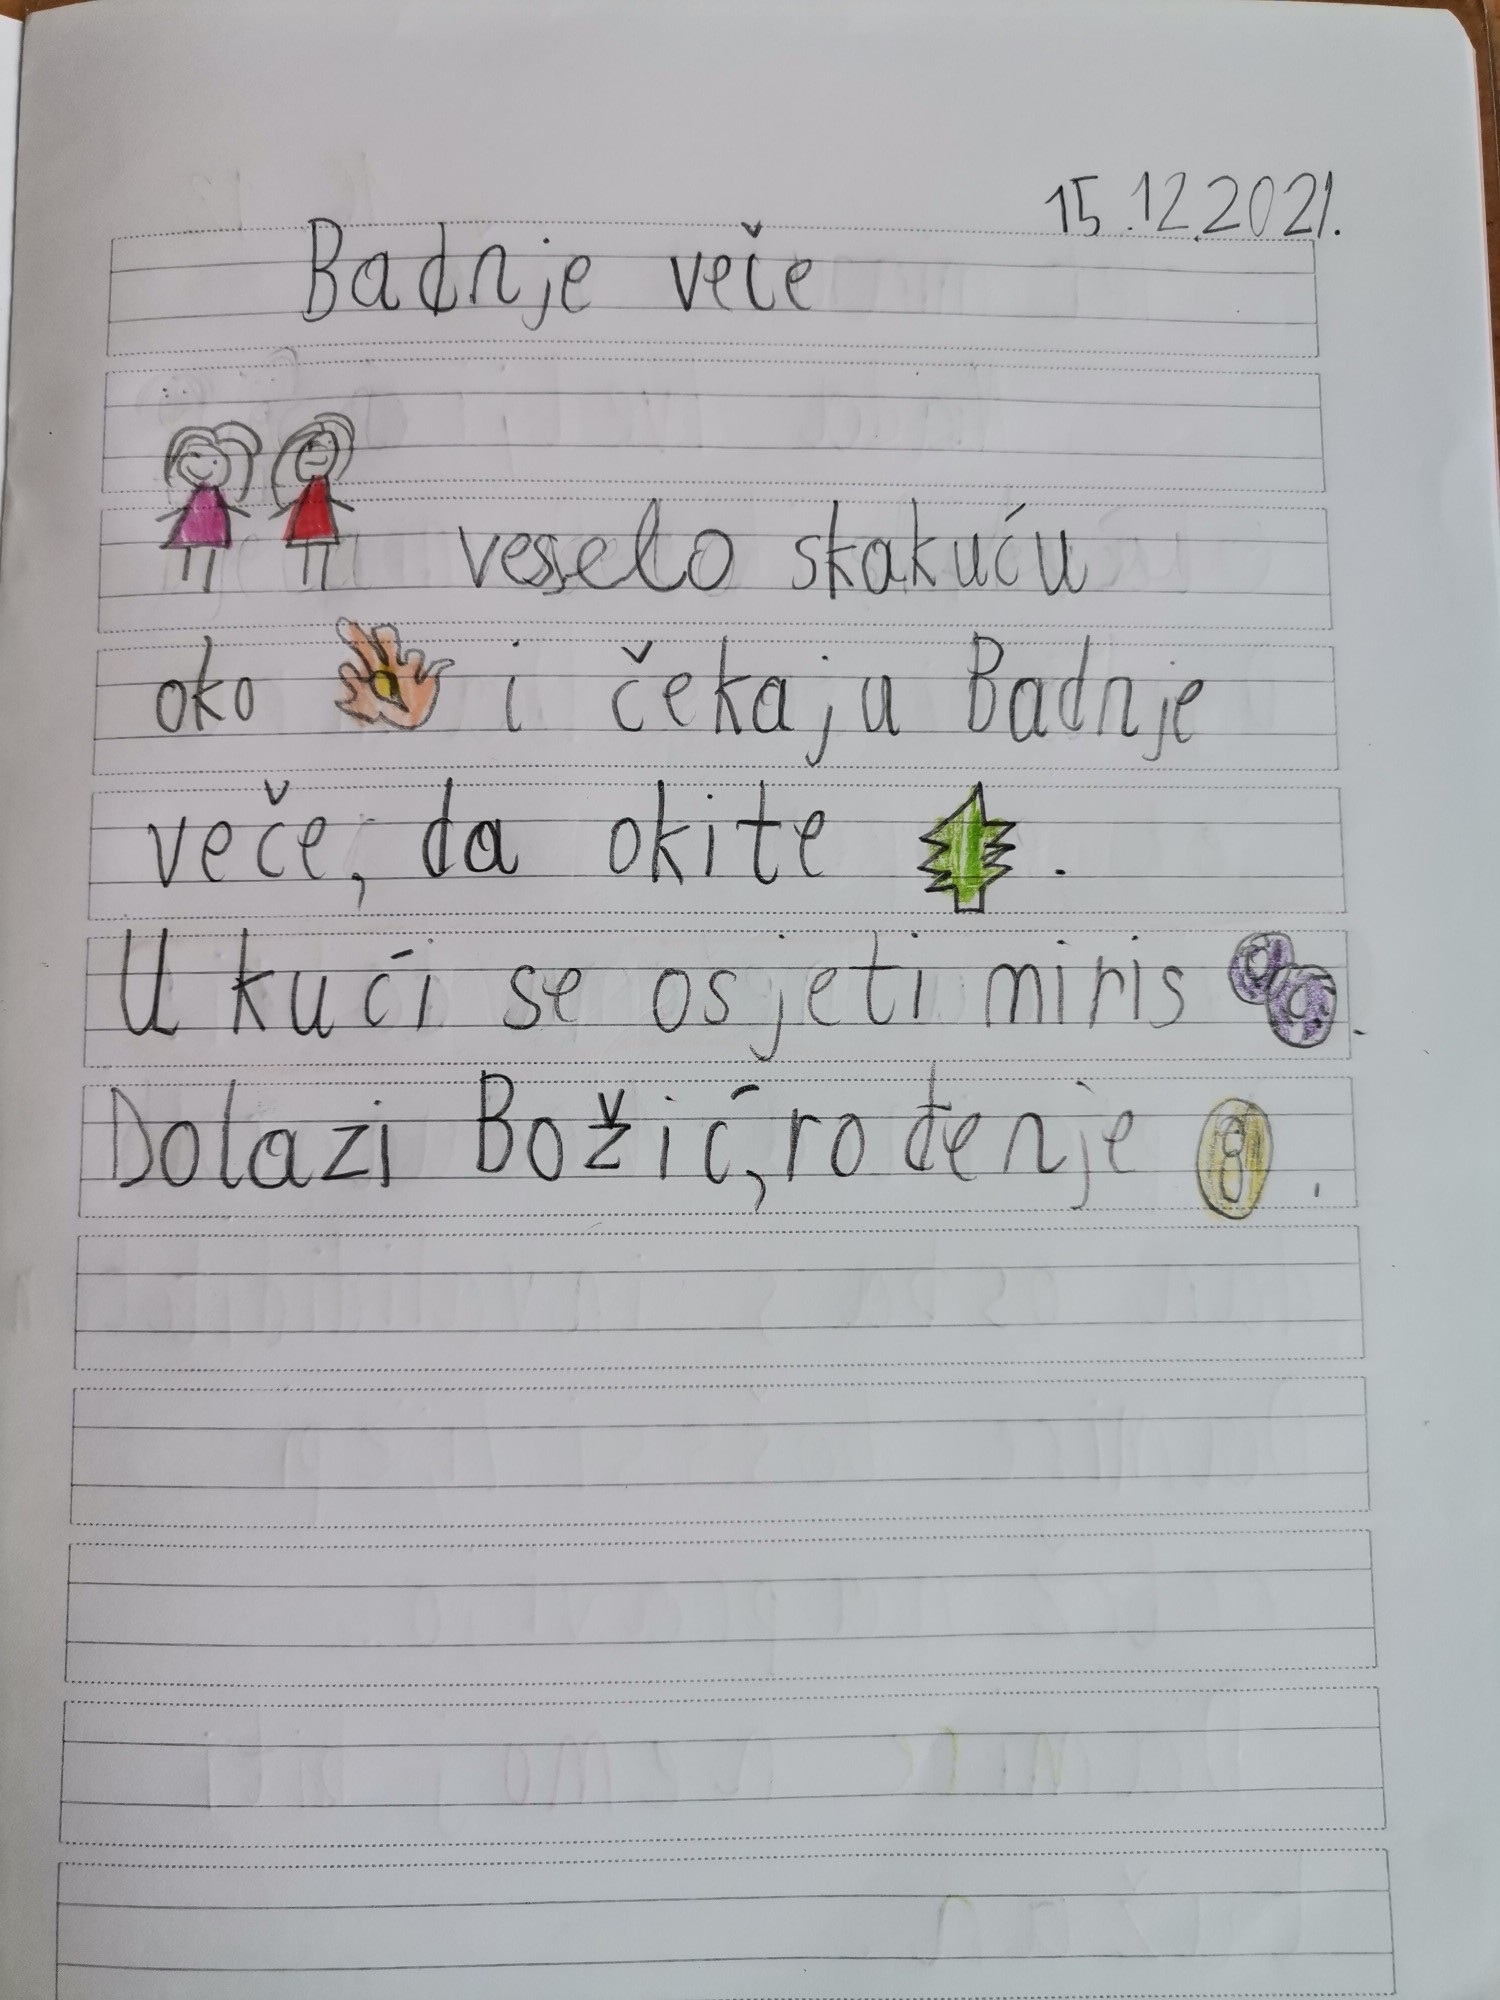 15.12.2021.
Badnje veče
veselo skakuću
oko i čekaju Badnje
veče, da okite .
U kući se osjeti miris .
Dolazi Božić, rođenje .